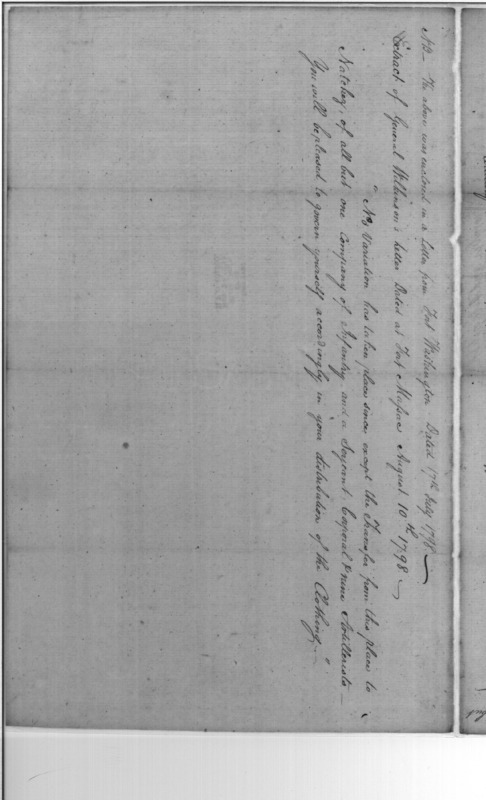 NB— The above was enclosed in a letter from Fort Washington Dated 17th July 1798—
Extract of General Wilkinson's letter Dated at Fort Massac August 10th 1798—
"No Variation has taken place since except the Transfer from this place to
Natchez, of all but one Company of Infantry and a Serjeant, Corporal & nine Artillerists—
You will be pleased to govern yourself accordingly in your distribution of the Clothing,—"